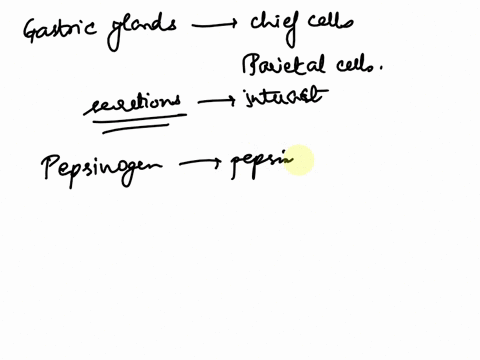 Gastric glands → chief cells
Parietal cells.
secretions → interact
Pepsinogen → pepsin